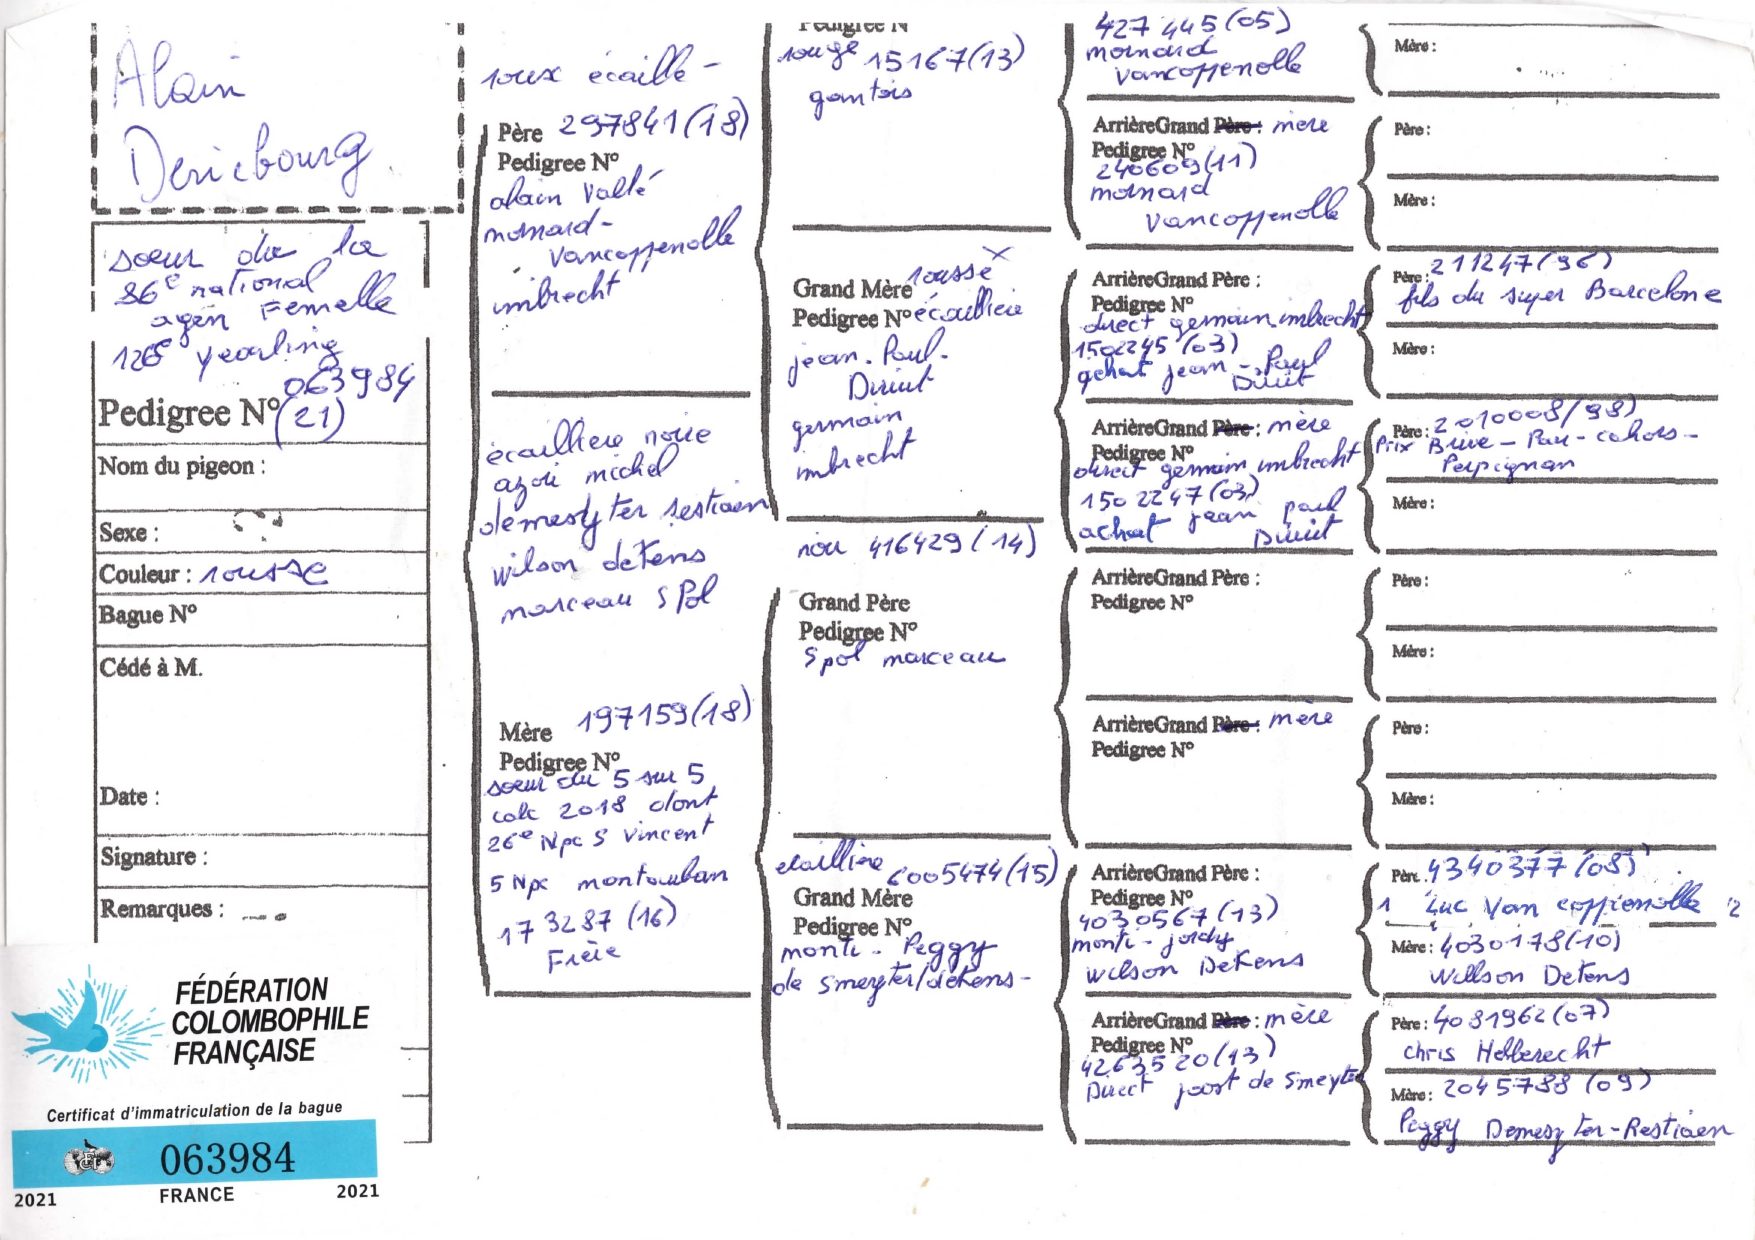 Alain
Dericbourg
soeur de la
86e national
agen Femelle
126e yearling
063984
Pedigree N° (21)
Nom du pigeon :
Sexe :
Couleur : rousse
Bague N°
Cédé à M.
Date :
Signature :
Remarques :
FÉDÉRATION
COLOMBOPHILE
FRANÇAISE
Certificat d'immatriculation de la bague
063984
2021 FRANCE 2021
roux écaillé -
Père 297841(18)
Pedigree N°
alain Vallé
monard-
Vancoppenolle
imbrecht
écaillere noire
michel
demeyter restiaen
wilson dekens
marceau S Pol
Mère 197159(18)
Pedigree N°
soeur du 5 sur 5
2018 dont
26e Npc S Vincent
5 Npc montauban
173287 (16)
Frère
Pedigree N°
rouge 15167(13)
gantois
Grand Mère rousse x
Pedigree N° écaillière
jean-Paul-
Diruit
germain
imbrecht
noir 416429 (14)
Grand Père
Pedigree N°
S pol marceau
ecaillière 6005474(15)
Grand Mère
Pedigree N°
monti - Peggy
de Smeyter/dekens-
427445(05)
monard
Vancoppenolle
ArrièreGrand Père : mère
Pedigree N°
240609(11)
monard
Vancoppenolle
ArrièreGrand Père :
Pedigree N°
direct germain imbrecht
1502245 (03)
achat jean-Paul
Diruit
ArrièreGrand Père : mère
Pedigree N°
direct germain imbrecht
1502247(03)
achat jean paul
Diruit
ArrièreGrand Père :
Pedigree N°
ArrièreGrand Père : mère
Pedigree N°
ArrièreGrand Père :
Pedigree N°
4030567(13)
monti - jordy
wilson Dekens
ArrièreGrand Père : mère
Pedigree N°
4263520(13)
Direct joost de Smeyter
Mère :
Père :
Mère :
Père : 211247(96)
fils du super Barcelone
Mère :
Père : 2010008/98)
Prix Brive - Pau - cahors -
Perpignan
Mère :
Père :
Mère :
Père :
Mère :
Père : 4340377 (08)
Luc Van coppenolle
Mère : 4030178(10)
Willson Dekens
Père : 4081962(07)
chris Hebberecht
Mère : 2045788 (09)
Peggy Demeyter-Restiaen